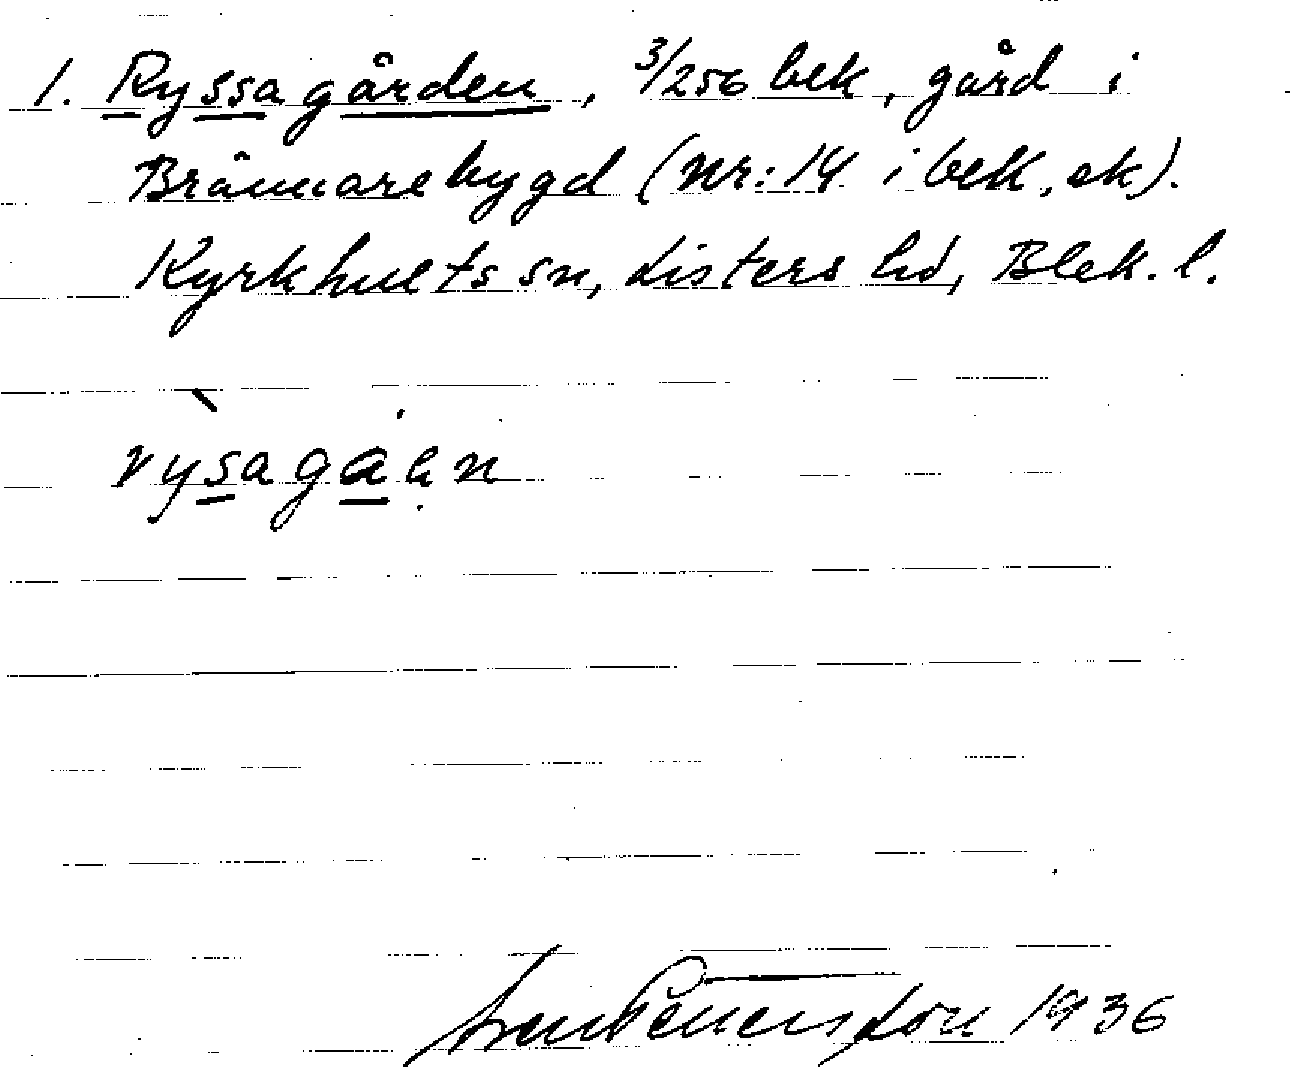 1. Ryssagården, 3/256 bek, gård i
Brännarebygd (nr: 14 i bek, ek).
Kyrkhults sn, Listers hd, Blek. l.
rysagaɻn
1936